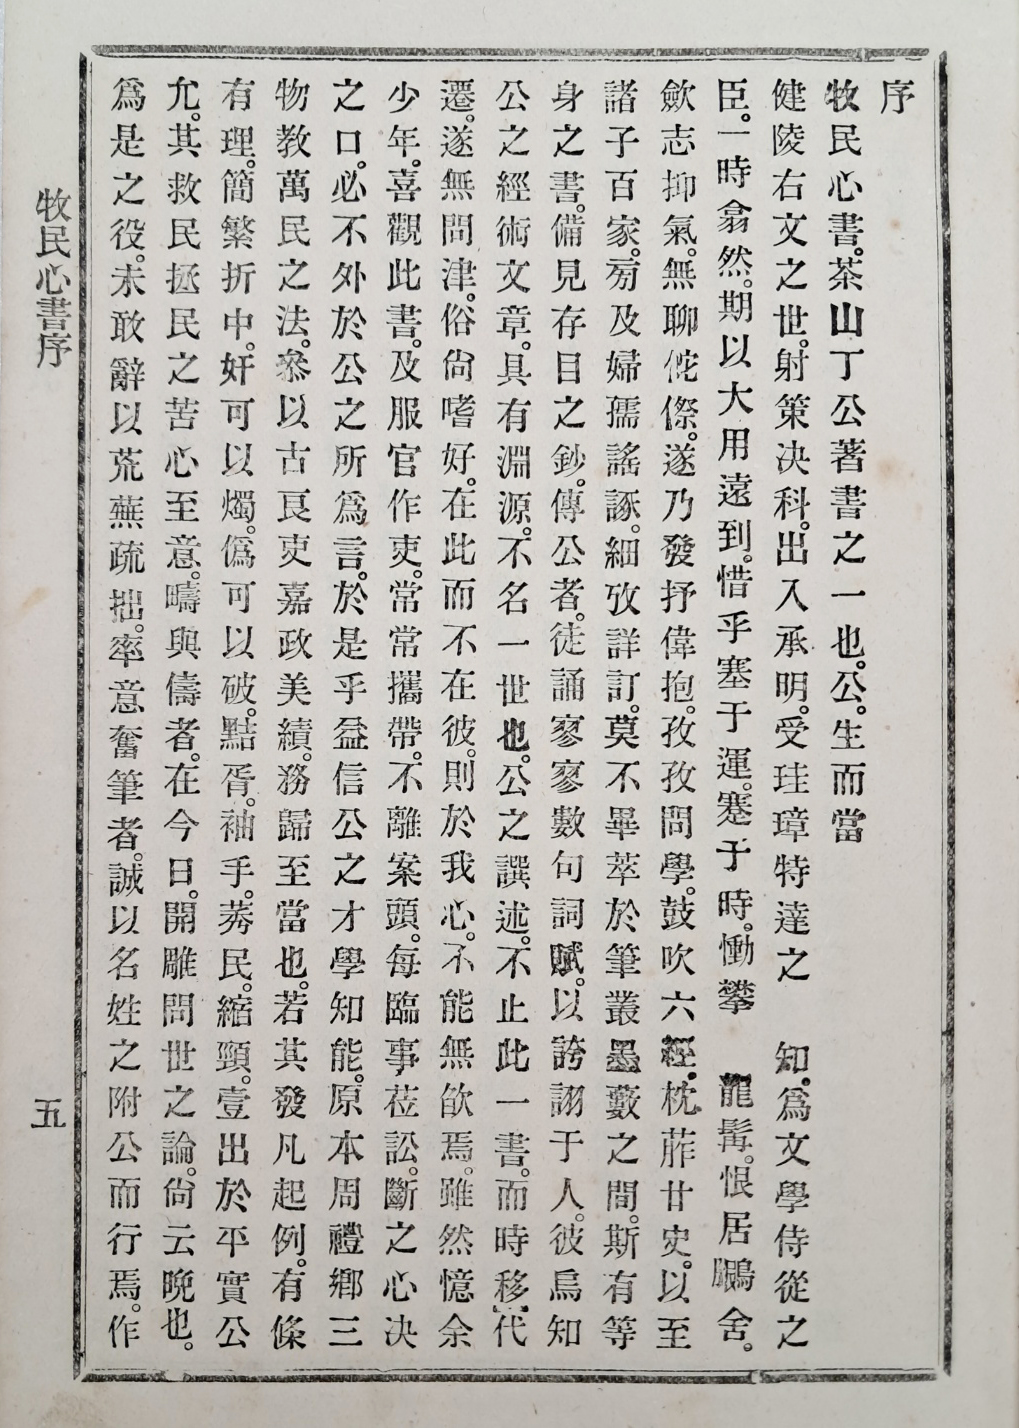 序
牧民心書。茶山丁公著書之一也。公。生而當
健陵右文之世。射策決科。出入承明。受珪璋特達之　知。爲文學侍從之
臣。一時翕然。期以大用遠到。惜乎塞于運。蹇于時。慟攀　龍髯。恨居鵩舍。
歛志抑氣。無聊侘傺。遂乃發抒偉抱。孜孜問學。鼓吹六經。枕葄廿史。以至
諸子百家。旁及婦孺謠諑。細攷詳訂。莫不畢萃於筆叢墨藪之間。斯有等
身之書。備見存目之鈔。傳公者。徒誦寥寥數句詞賦。以誇詡于人。彼烏知
公之經術文章。具有淵源。不名一世也。公之譔述。不止此一書。而時移代
遷。遂無問津。俗尙嗜好。在此而不在彼。則於我心。不能無歆焉。雖然憶余
少年。喜觀此書。及服官作吏。常常攜帶。不離案頭。每臨事莅訟。斷之心決
之口。必不外於公之所爲言。於是乎益信公之才學知能。原本周禮鄕三
物教萬民之法。叅以古良吏嘉政美績。務歸至當也。若其發凡起例。有條
有理。簡繁折中。奸可以燭。僞可以破。黠胥。袖手。莠民。縮頸。壹出於平實公
允。其救民拯民之苦心至意。疇與儔者。在今日。開雕問世之論。尙云晩也。
爲是之役。未敢辭以荒蕪疏拙。率意奮筆者。誠以名姓之附公而行焉。作
牧民心書序
五